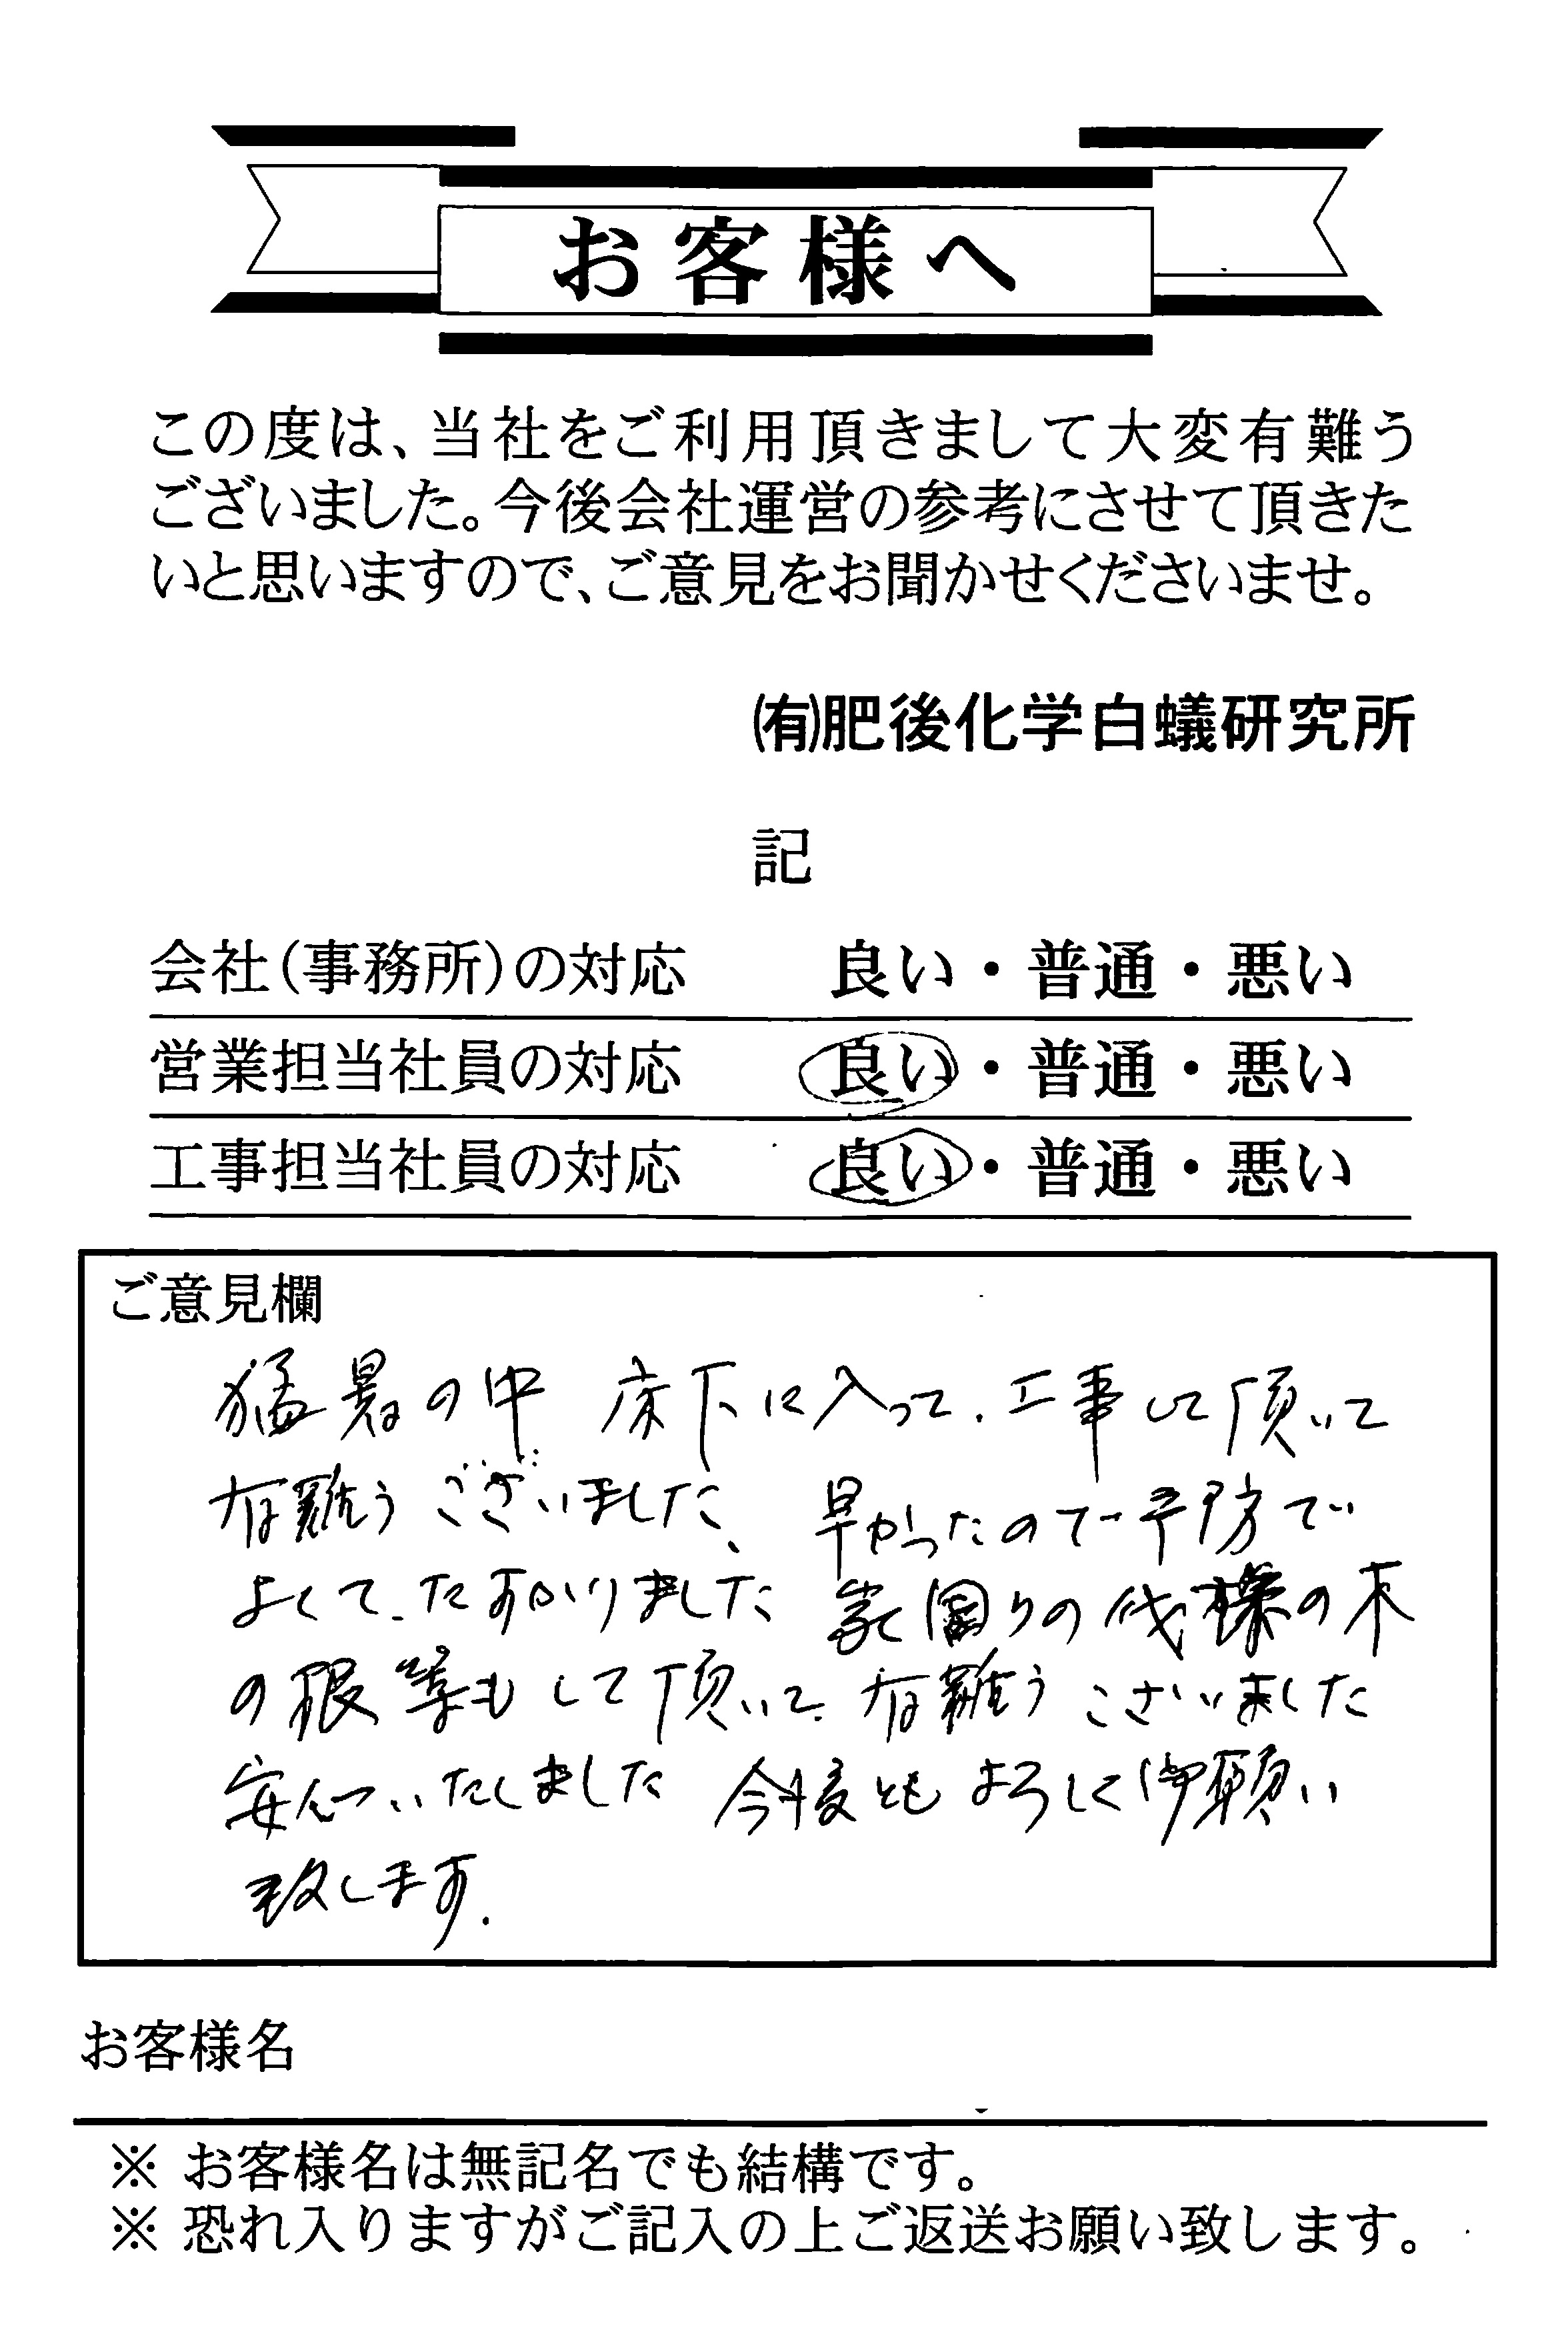 お客様へ
この度は、当社をご利用頂きまして大変有難う
ございました。今後会社運営の参考にさせて頂きた
いと思いますので、ご意見をお聞かせくださいませ。
㈲肥後化学白蟻研究所
記
会社(事務所)の対応 良い・普通・悪い
営業担当社員の対応 良い・普通・悪い
工事担当社員の対応 良い・普通・悪い
ご意見欄
猛暑の中 床下に入って、工事して頂いて
有難うございました、早かったので予防で
よくて、たすかりました 家囲りの伐採の木
の根等もして頂いて、有難うございました
安んついたしました 今後ともよろしく御願い
致します.
お客様名
※ お客様名は無記名でも結構です。
※ 恐れ入りますがご記入の上ご返送お願い致します。